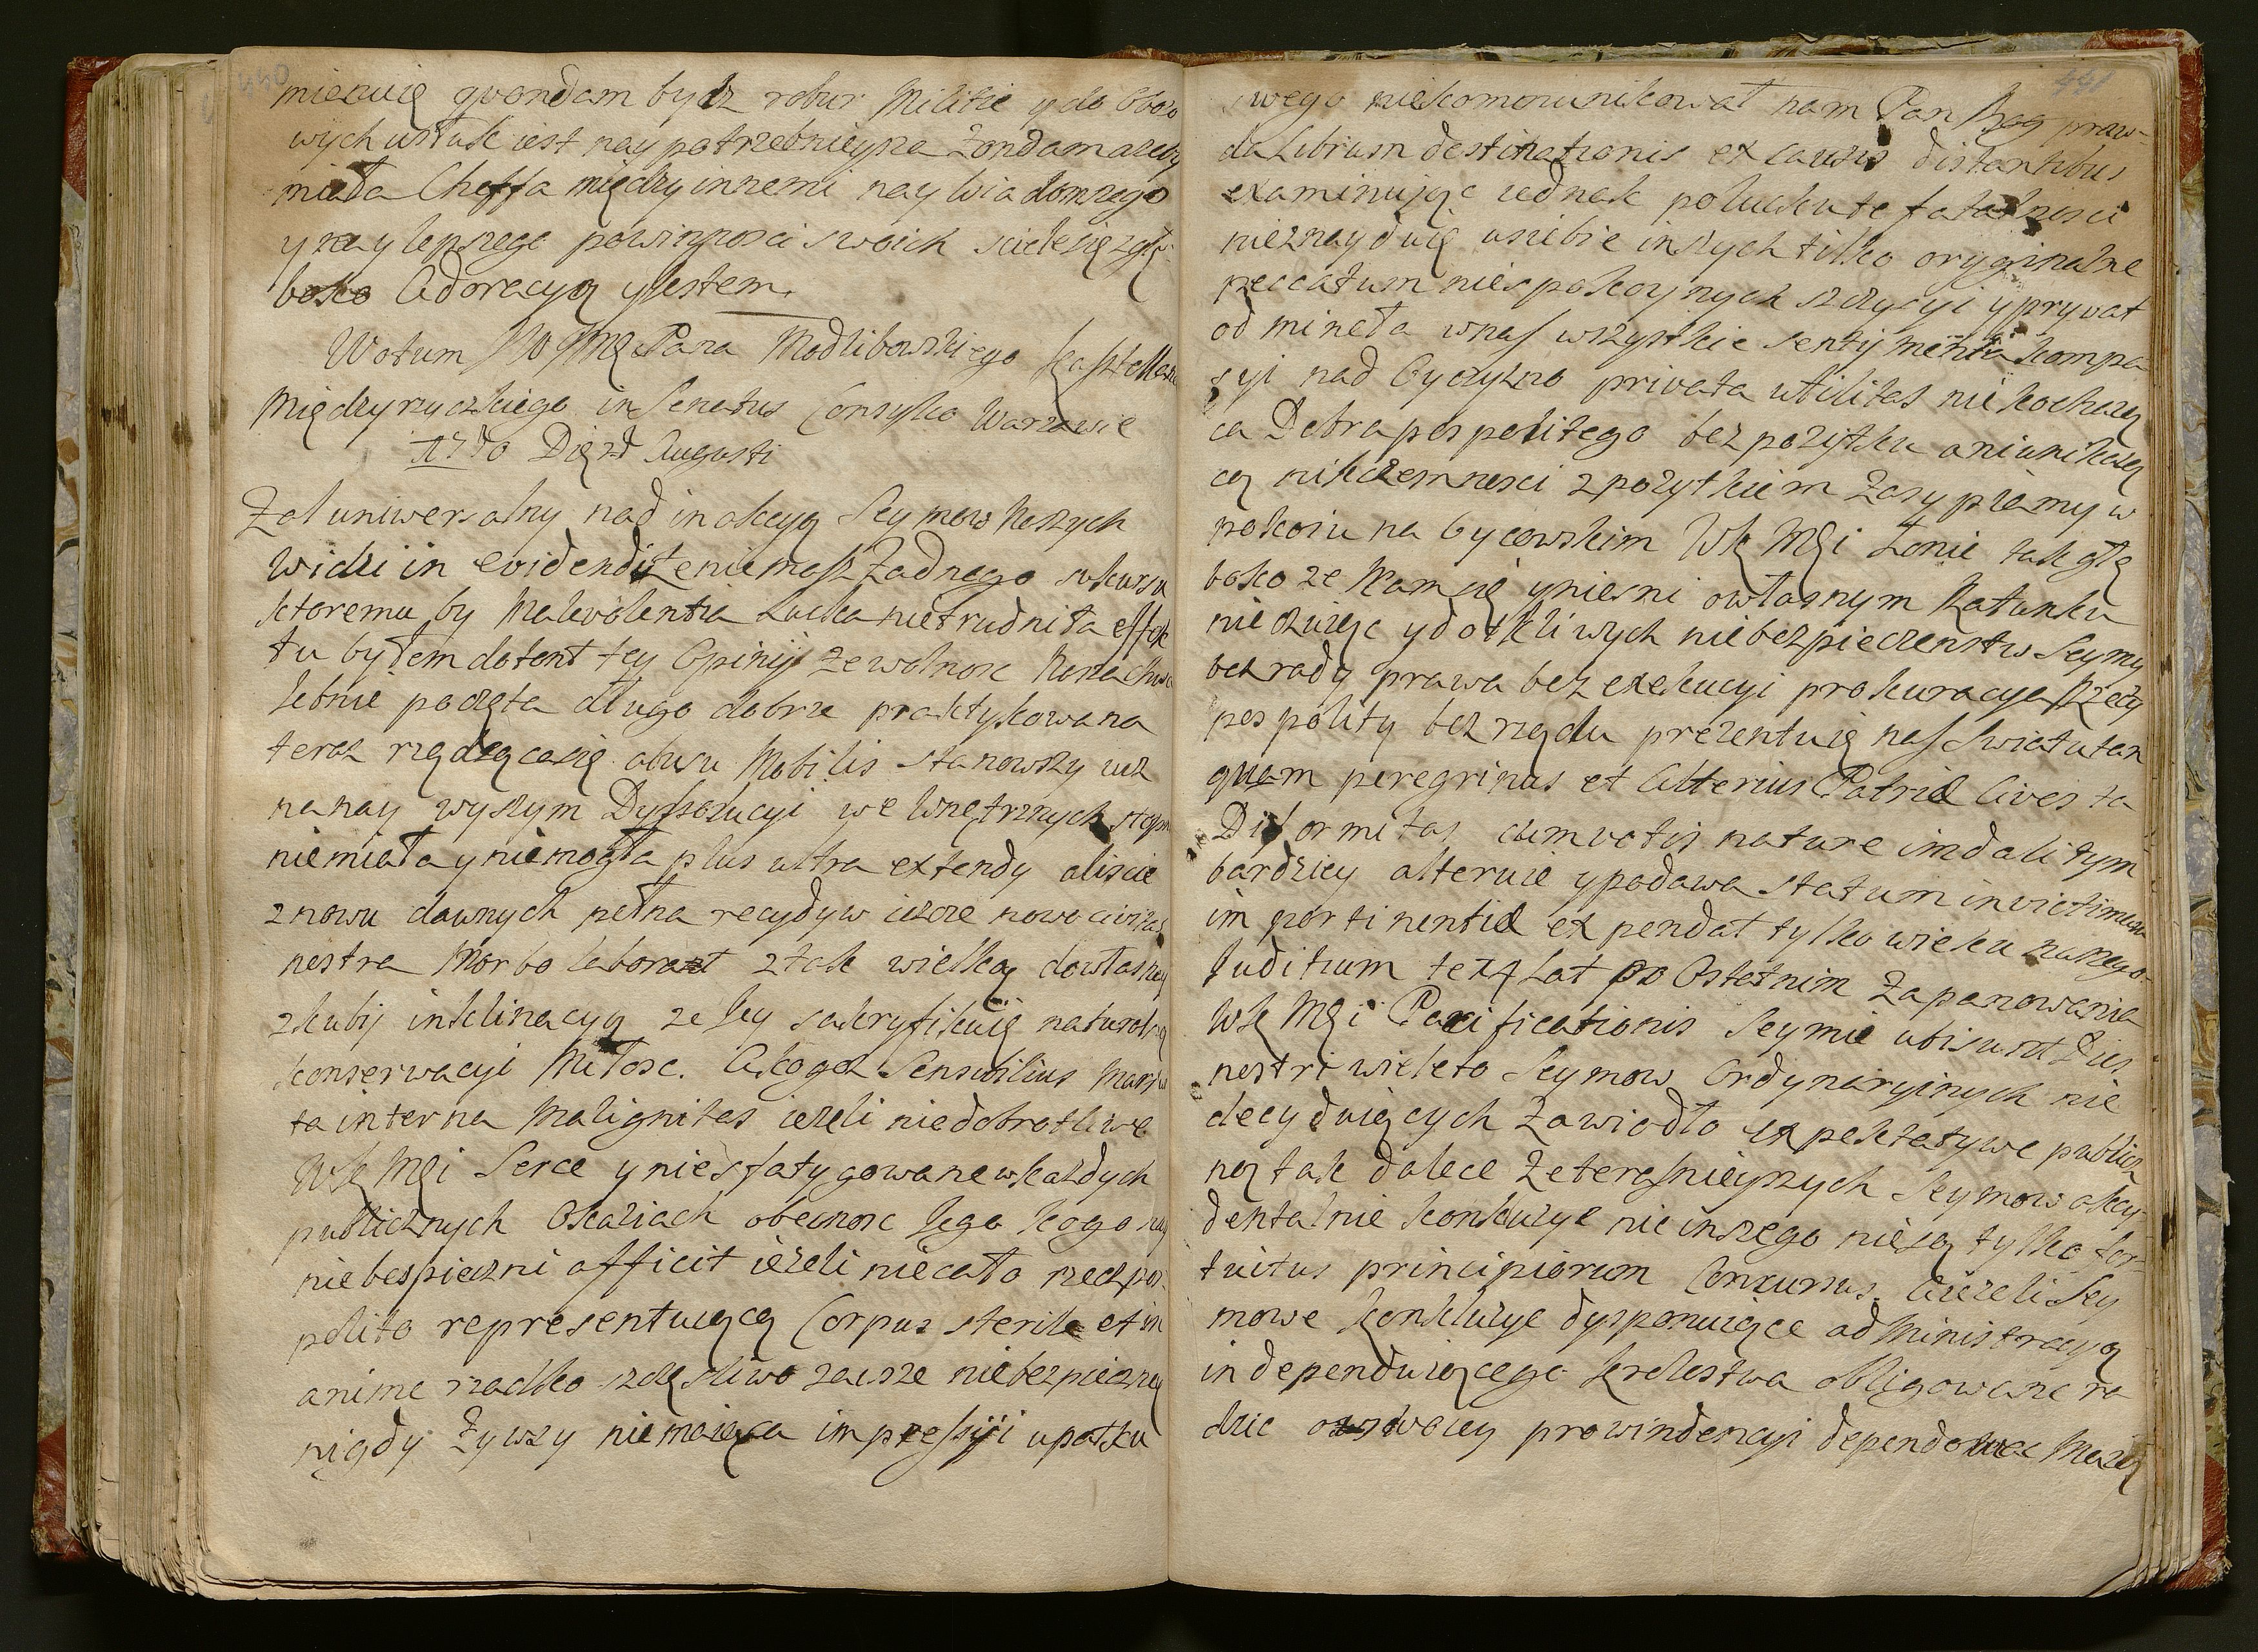 440
mieruię quondam bydz robur Militie y do Obozo
wych usług iest naypotrzebnieysza żondam azeby
miała Cheffa między inszemi nay wiadomszego
y naylepszego powinnosci swoich sciele się z głę
boko Adoracyą y Jestem.
Wotum JW JMę Pana Modlibowskiego Kasztellana
Międzyrzyczkiego in Senatus Consylio Warszawie
Die 2d Augusti
Zal uniwersalny nad inakcyą Seymow Naszych
Widzi in evidendi że niemasz żadnego sukursu
ktoremu by Malevolentia Ludzka nie trudniła effek
tu byłem dotent tey Opinij ze wolnosc Nasza chwa
lebnie poczęta długo dobrze praktykowana
teraz rządzącasię abusu Nobilis stanowszy iuz
na nay wyszym Dyssolucyi we wnętrznych stopn
niemiała y niemogła plus ultra extendy alisciе
znowu dawnych pełna recydyw ieszcze nowo civitas
nostra Morbo laborat z tak wielką do własney
zguby inklinacyą ze Jey sakryfikuię naturalną
konserwacyi Miłosc. A kogoz Sensibilius martwi
ta interna Malignitas iezeli nie dobrotliwe
WKMci Serce y nie sfatygowane w kazdych
publicznych Okaziach obecnosc Jego kogo nay
niebespieczni officit iezeli nie cało rzeczpos
polito representuiącą Corpus sterile et in
anime rzadko szczęsliwo zawsze niebezpieczney
nigdy Zywszy niemaiąca impressyi upatku
441
swego nieskommunikował nam Pan Bog praw-
da Librum destinationis ex causis distantibus
examinując iednak poszukute fatalnosci
nieznayduię usiebie inszych tilko oryginalne
peccatum niespokoynych szczycyi y prywat
od mineła wnas wszystkie sentijmenta kompa
syi nad Oyczyzno privata utilitas nie kochaią
ca Dobra pospolitego bez pozytku ani unikaią
cą nikczemnosci z pozytkiem Zasypiamy w
pokoiu na Oycowskim WKMci Łonie tak głę
boko ze Nam się y niesni o własnym Ratunku
nie czuiąc y dotkliwych niebezpieczenstw Seymy
bez rady prawa bez exekucyi prokuracya Rzeczy
pospolity bez rządu prezentuię nas Swiatu tan
quam peregrinus et Alterius Patriæ Cives ta
Diformitas cum votis nature im dali tym
bardziey alteruie y podawa statum in victimam
im portinentiæ expendat tylko wieku naszego
Juditium tezą Lat po Ostatnim Zapanowania
WKMci Pacificationis Seymie ubi sunt Dies
nostri wieleto Seymow Ordynaryinych nie
decyduiących Zawiodło expektatywe publicz
ną tak dalece Ze teraznieyszych Seymow akcy-
dentalnie konkluzye nic inszego niesą tylko for-
tuitus principiorum Concursus. A iezeli Sey
mowe konkluzye dysponuiące administracyą
independuiącego krolestwa obligowane ra
dzic o swoiey prowindencyi dependowac Maią